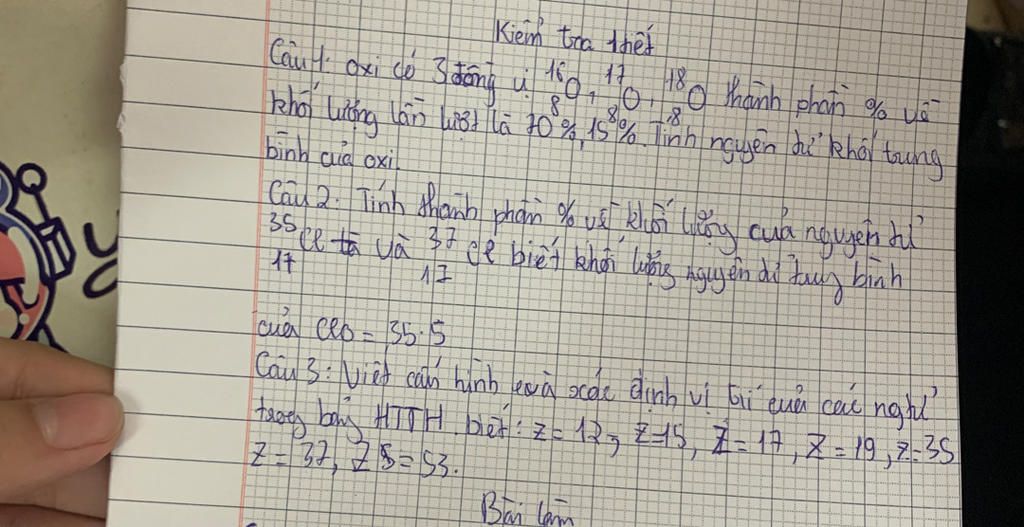 Kiểm tra 1 tiết
Câu 1: oxi có 3 đồng vị ¹⁶₈O, ¹⁷₈O, ¹⁸₈O thành phần % về
khối lượng lần lượt là 70%, 15%. Tính nguyên tử khối trung
bình của oxi.
Câu 2: Tính thành phần % về khối lượng của nguyên tử
³⁵₁₇Cl và ³⁷₁₇Cl biết khối lượng nguyên tử trung bình
của Clo = 35.5
Câu 3: Viết cấu hình e và xác định vị trí của các ngtử
trong bảng HTTH biết: Z = 12, Z=15, Z = 17, Z = 19, Z=35
Z = 37, Z = 53.
Bài làm